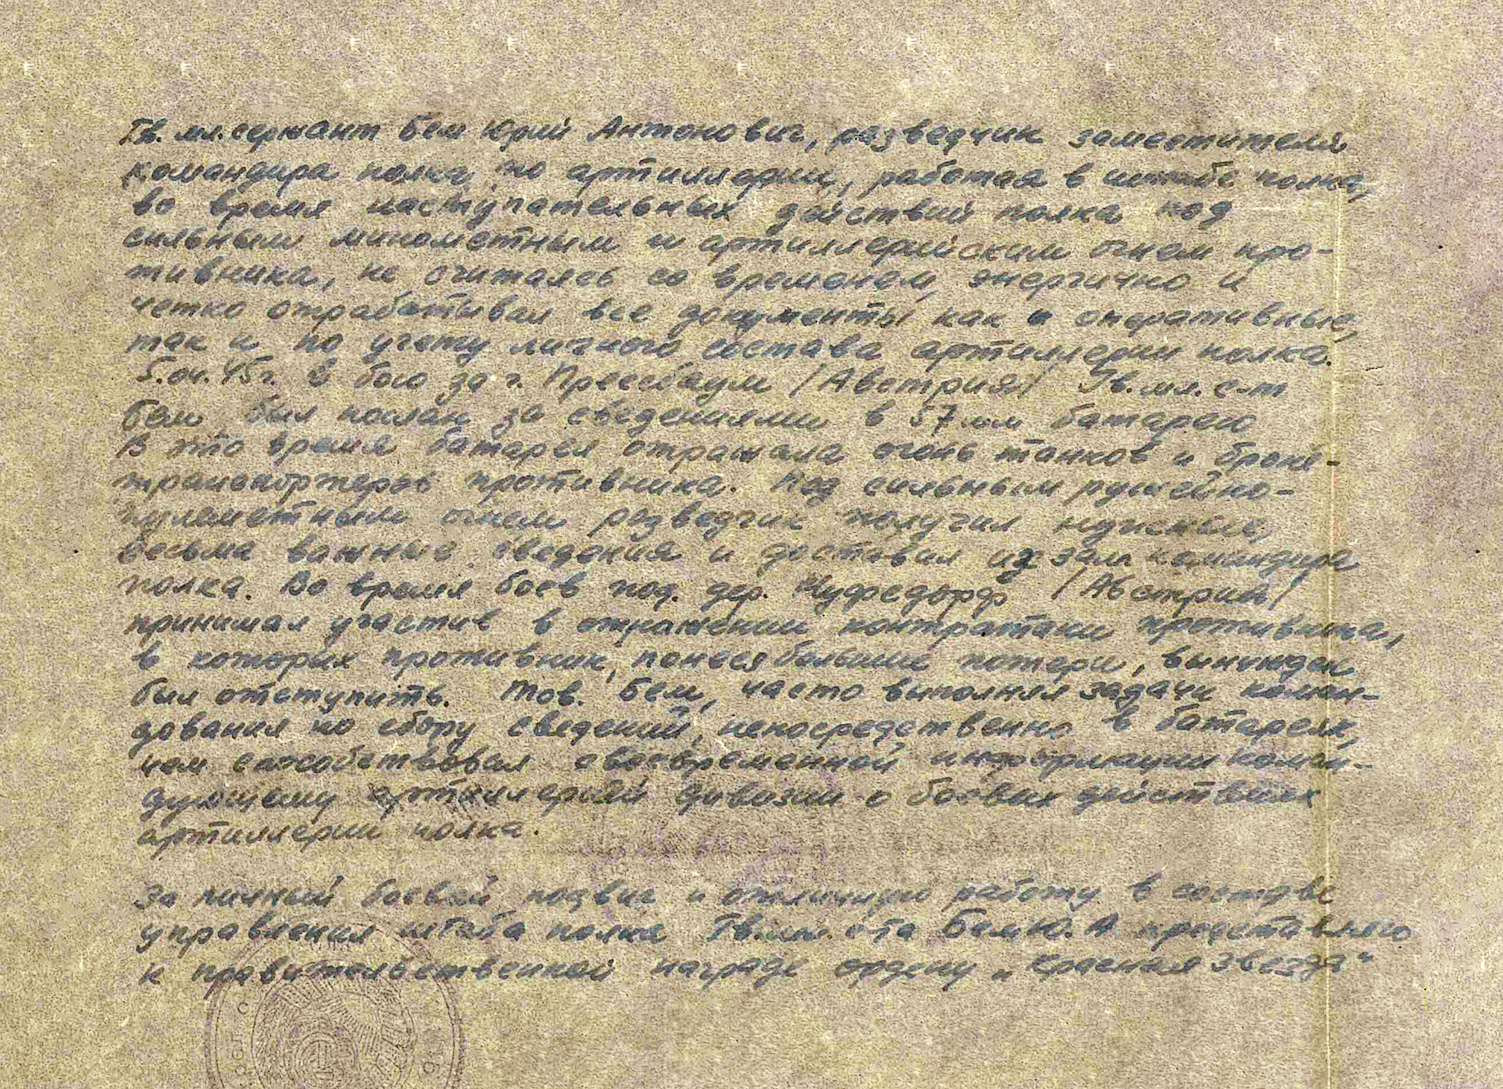 Гв. мл. сержант Бем Юрий Антонович, разведчик заместителя
командира полка по артиллерии, работая в штабе полка,
во время наступательных действий полка под
сильным минометным и артиллерийским огнем про-
тивника, не считаясь со временем, энергично и
четко отрабатывал все документы как и оперативные,
так и по учету личного состава артиллерии полка.
5.04.45г. в бою за г. Прессбаум /Австрия/ Гв. мл. с-т
Бем был послан за сведениями в 57 мм батарею
В это время батарея отражала огонь танков и броне-
транспортеров противника. Под сильным ружейно-
пулеметным огнем разведчик получил нужные,
весьма важные сведения и доставил их зам. командира
полка. Во время боев под дер. /Австрия/
принимал участие в отражении контратаки противника,
в которых противник, понеся большие потери, вынужден
был отступить. Тов. Бем, часто выполнял задачи коман-
дования по сбору сведений, непосредственно в батареях,
чем способствовал своевременной информации коман-
дующему артиллерией дивизии о боевых действиях
артиллерии полка.
За личный боевой подвиг и отличную работу в составе
управления штаба полка Гв. мл. с-та Бем Ю. А представляю
к правительственной награде ордену „Красная звезда"